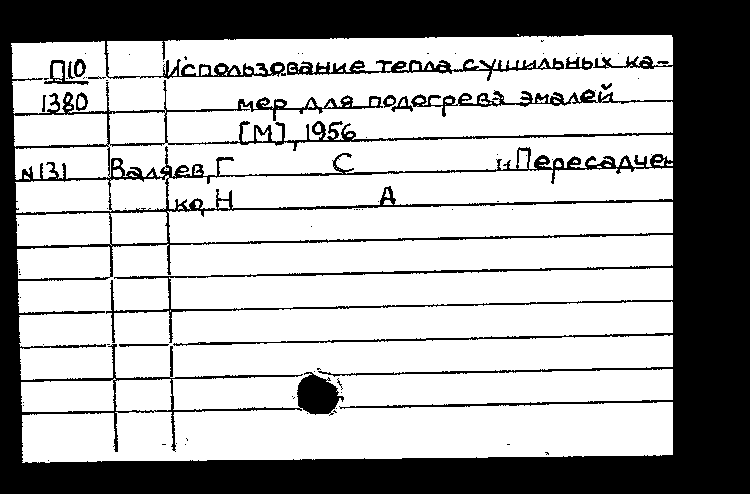 П10 Использование тепла сушильных ка-
1380 мер для подогрева эмалей
[М], 1956
№131 Валяев, Г С и Пересадчен
ко, Н А